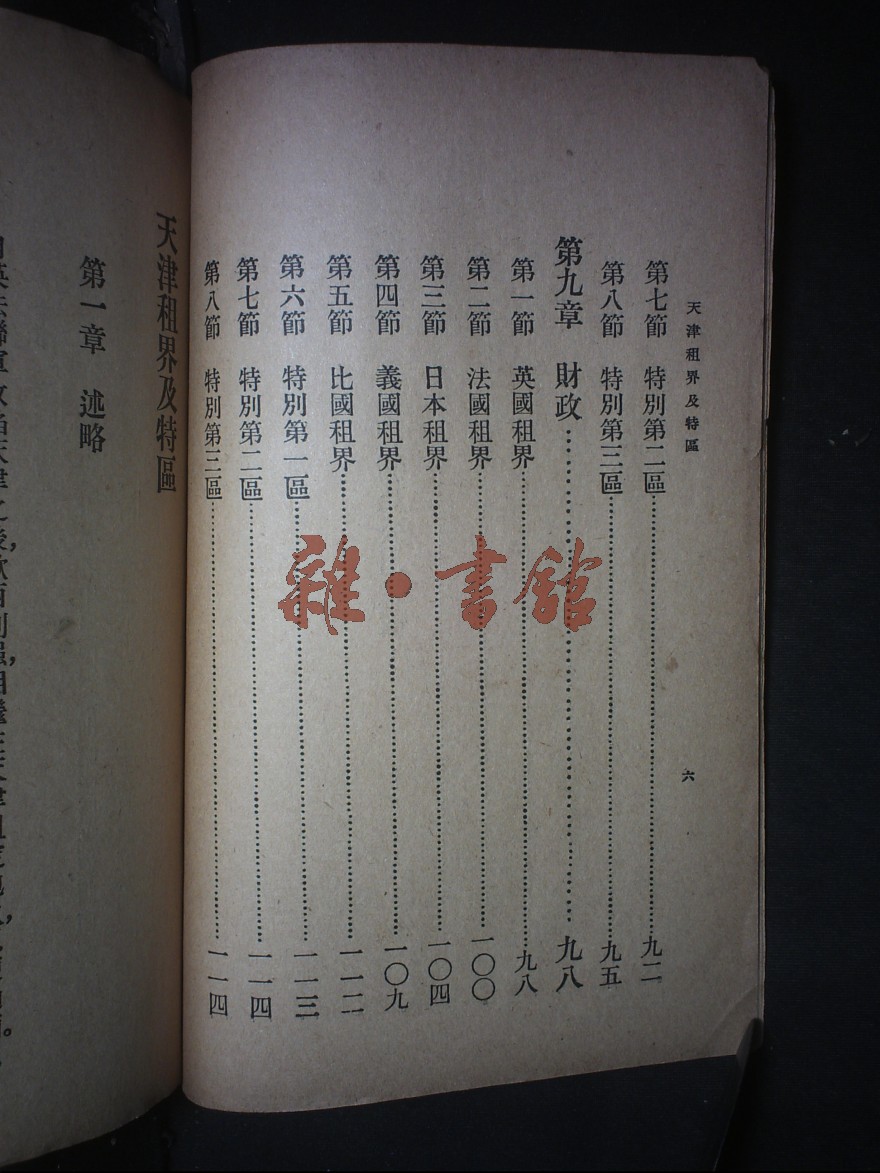 天津租界及特區
六
第七節 特別第二區……九二
第八節 特別第三區……九五
第九章 財政……九八
第一節 英國租界……九八
第二節 法國租界……一〇〇
第三節 日本租界……一〇四
第四節 義國租界……一〇九
第五節 比國租界……一一二
第六節 特別第一區……一一三
第七節 特別第二區……一一四
第八節 特別第三區……一一四
雜·書館
天津租界及特區
第一章 述略